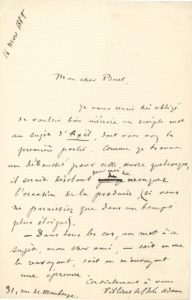 16 mars 1885
Mon cher Buet,
Je vous serais très obligé
de vouloir bien m'écrire un simple mot
au sujet d'Axël, dont vous avez la
première partie. Comme je trouve
un débouché pour cette œuvre quelconque,
il serait désolant pour moi de manquer
l'occasion de la produire (si vous
ne paraissiez que dans un temps
plus éloigné).
— Dans tous les cas, un mot à ce
sujet, mon cher ami, — soit en me
le renvoyant, soit en m'envoyant
une épreuve.
Cordialement à vous
Villiers de l'Isle Adam
31, rue de Maubeuge.